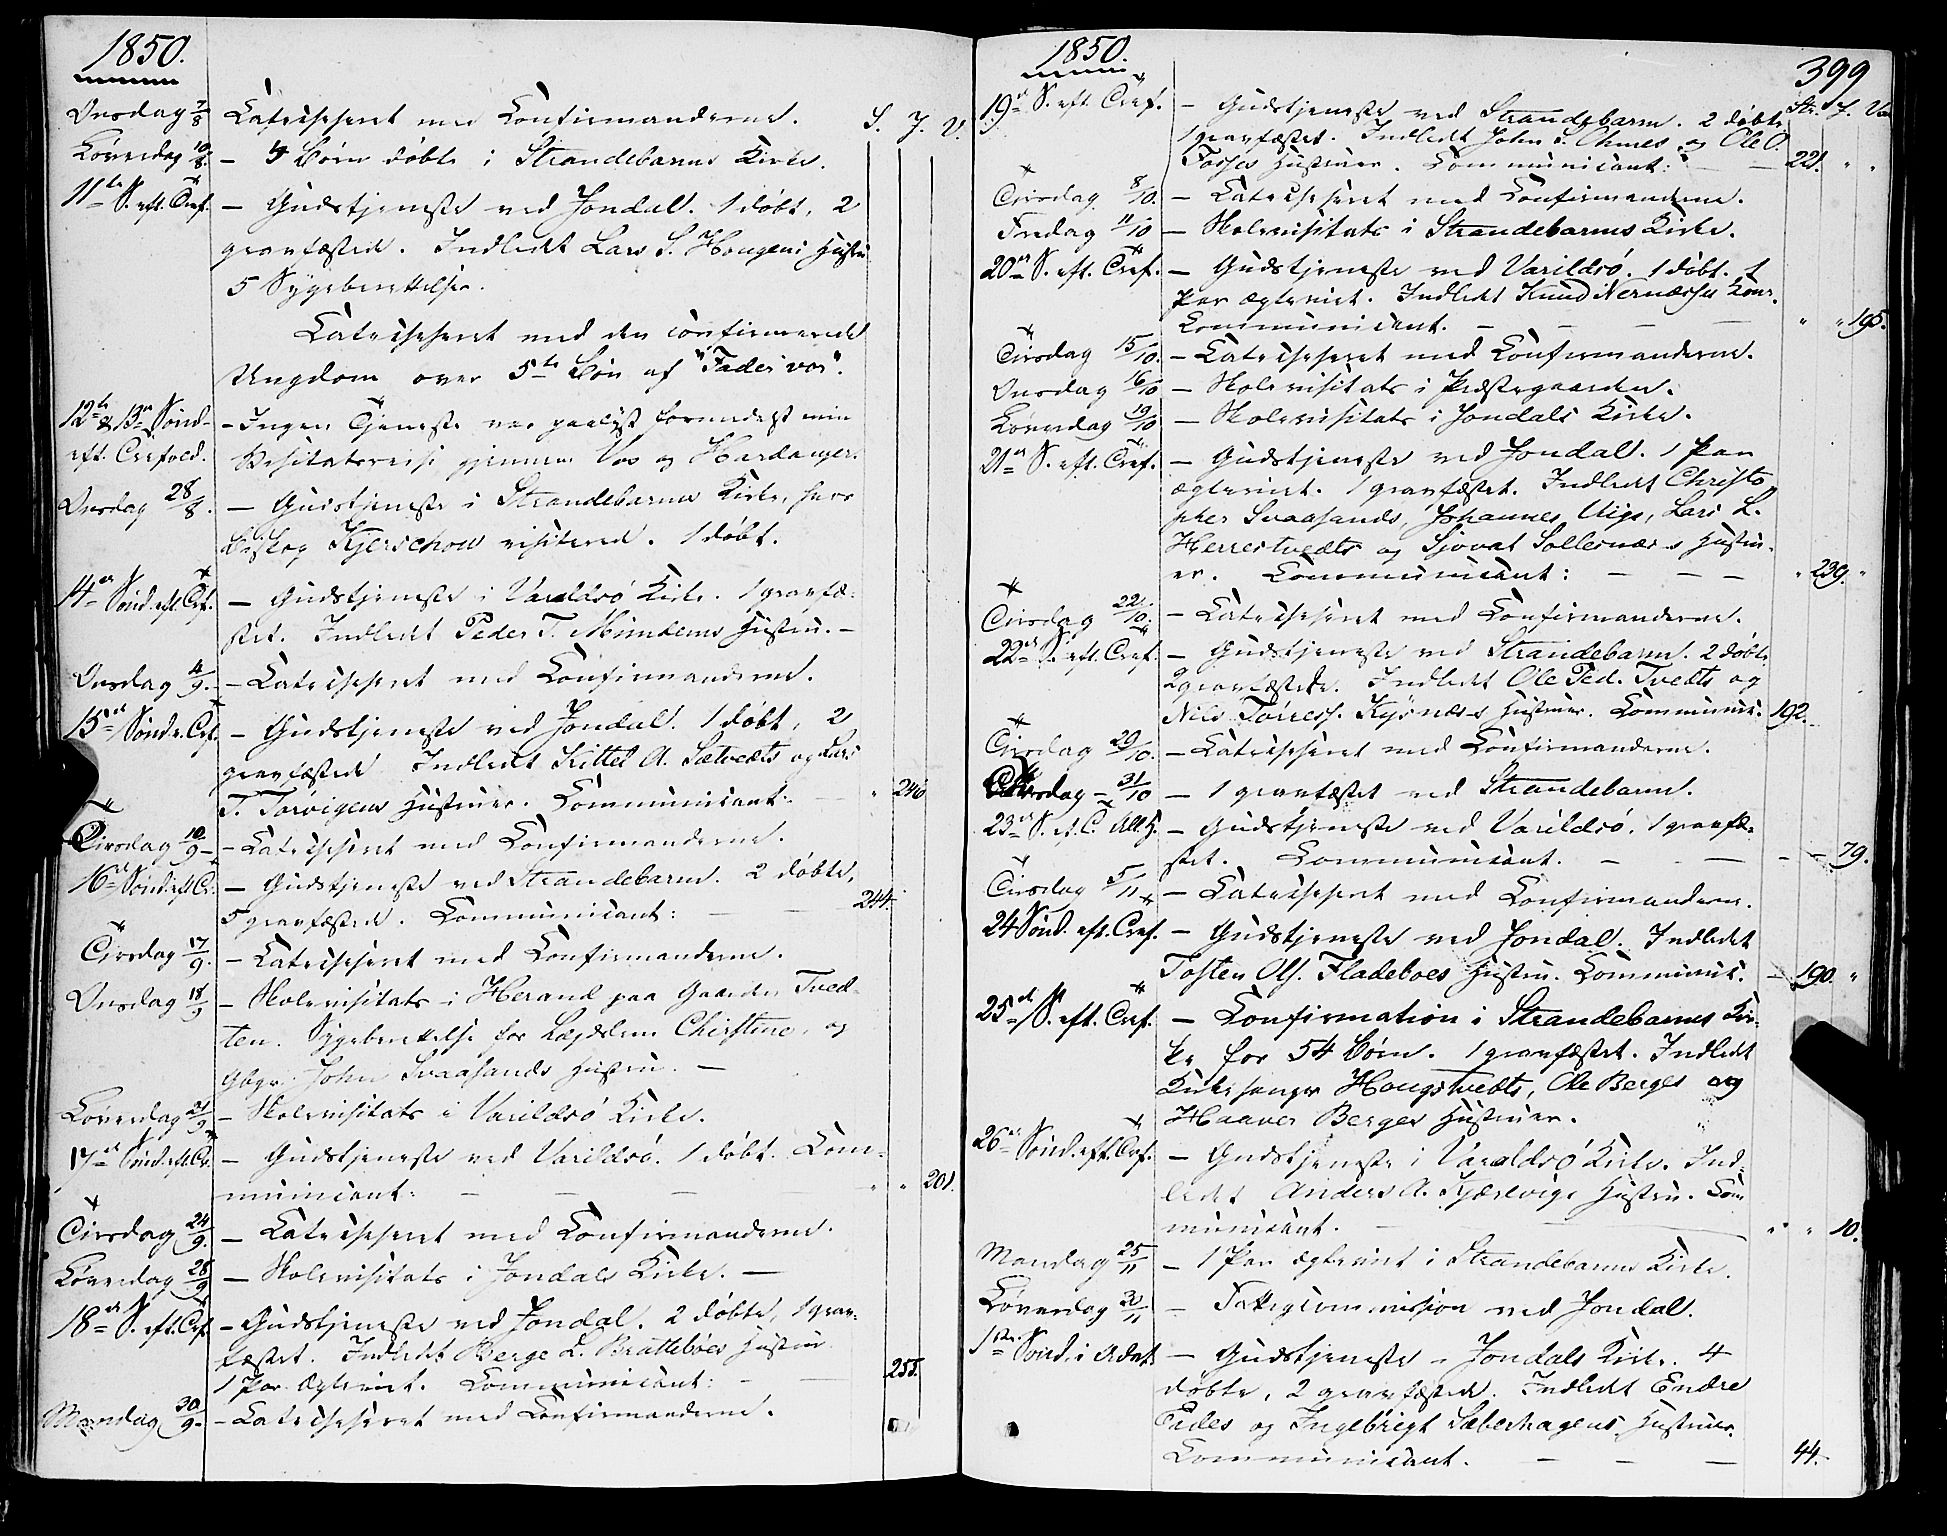 1850.
S. J. V.
Onsdag 7/8 Catechiseret med Confirmanderne.
Löverdag 10/8 – 4 Börn döbte i Strandebarms Kirke.
11te S. eft. Tref. – Gudstjeneste ved Jondal. 1 döbt, 2
gravfæstede. Indledet Lars S. Hougens Hustru
5 Sygeberettelser.
Catechiseret med den confirmerede
Ungdom over 5te Bön af "Fader vor".
12te & 13de Sönd. – Ingen Tjeneste var paalyst formedelst min
eft. Trefold. Visitatsreise gjennem Vos og Hardanger.
Onsdag 28/8. – Gudstjeneste i Strandebarms Kirke, hvor
Biskop Kjerschow visiterede. 1 döbt.
14de Sönd. eft. Tref. – Gudstjeneste i Varaldsö Kirke. 1 gravfæ-
stet. Indledet Peder T. Mundems Hustru. –
Onsdag 4/9. – Catechiseret med Confirmanderne.
15de Sönd. e. Tref. – Gudstjeneste ved Jondal. 1 döbt, 2
gravfæstede. Indledet Kittel A. Sætvedts og Lars
T. Torvigens Hustruer. Communicant: – " 246
Tirsdag 10/9 – Catechiseret med Confirmanderne.
16de Sönd. eft. Tr. – Gudstjeneste ved Strandebarm. 2 döbte,
5 gravfæstede. Communicant: – – 244.
Tirsdag 17/9. – Catechiseret med Confirmanderne.
Onsdag 18/9 – Skolevisitats i Herand paa Gaarden Tved-
ten. Sygeberettelse for Lægdslem Christine, og
Gbgr. John Svaasands Hustru. –
Löverdag 21/9 – Skolevisitats i Varildsö Kirke.
17de Sönd. eft. Tr. – Gudstjeneste ved Varildsö. 1 döbt. Com-
municant: – – – – " " 201.
Tirsdag 24/9. – Catechiseret med Confirmanderne.
Löverdag 28/9 – Skolevisitats i Jondals Kirke. –
18de S. eft. Tref. – Gudstjeneste ved Jondal. 2 döbte, 1 grav-
fæstet. Indledet Berge L. Bratteböes Hustru
1 Par ægteviet. Communicant: – – 255.
Mandag 30/9. – Catechiseret med Confirmanderne.
1850.
399
Str. J. Va
19de S. eft. Tref. – Gudstjeneste ved Strandebarm. 2 döbte
1 gravfæstet. Indledet John S. Omnes og Ole O.
Fosses Hustruer. Communicant: – 221. " "
Tirsdag 8/10. – Catechiseret med Confirmanderne.
Fredag 11/10 – Skolevisitats i Strandebarms Kirke.
20de S. eft. Tref. – Gudstjeneste ved Varildsö. 1 döbt. 1
Par ægteviet. Indledet Knud Nernæsses Kone.
Communicant. – – – – " " 195.
Tirsdag 15/10. – Catechiseret med Confirmanderne.
Onsdag 16/10 – Skolevisitats i Præstegaarden.
Löverdag 19/10 – Skolevisitats i Jondals Kirke.
21de S. eft. Tref. – Gudstjeneste ved Jondal. 1 Par
ægteviet. 1 gravfæstet. Indledet Christo
pher Svaasands, Johannes Viigs, Lars L.
Herrestvedts og Sjovat Sollesnæs's Hustru-
er. Communicant: – – – " 239. "
Tirsdag 22/10. – Catechiseret med Confirmanderne.
22de S. eft. Tref. – Gudstjeneste ved Strandebarm. 2 döbte
2 gravfæstede. Indledet Ole Ped. Tvedts og
Nils Törress. Kysnæs's Hustruer. Communic. 192.
Tirsdag 29/10. – Catechiseret med Confirmanderne.
31/10 – 1 gravfæstet ved Strandebarm.
23de S. ef. T. All. H. – Gudstjeneste ved Varildsö. 1 gravfæ-
stet. Communicant. – – – – 79.
Tirsdag 5/11 – Catechiseret med Confirmanderne.
24 Sönd. eft. Tref. – Gudstjeneste ved Jondal. Indledet
Tosten Ols. Fladeboes Hustru. Communic. – 190. "
25de S. eft. Tref. – Confirmation i Strandebarms Kir-
ke for 54 Börn. 1 gravfæstet. Indledet
Kirkesanger Hougstvedts, Ole Berges og
Haaver Berges Hustruer.
26de Sönd. eft. Tref. – Gudstjeneste i Varaldsö Kirke. Ind-
ledet Anders A. Kjærevigs Hustru. Com
municant. – – " " 10.
Mandag 25/11 – 1 Par ægteviet i Strandebarms Kirke.
Löverdag 30/11 – Fattigcommission ved Jondal.
1ste Sönd. i Advt. – Gudstjeneste i Jondals Kirke. 4
döbte, 2 gravfæstede. Indledet Endre
Eides og Ingebrigt Sæberhagens Hustruer.
Communicant. – – – 44.